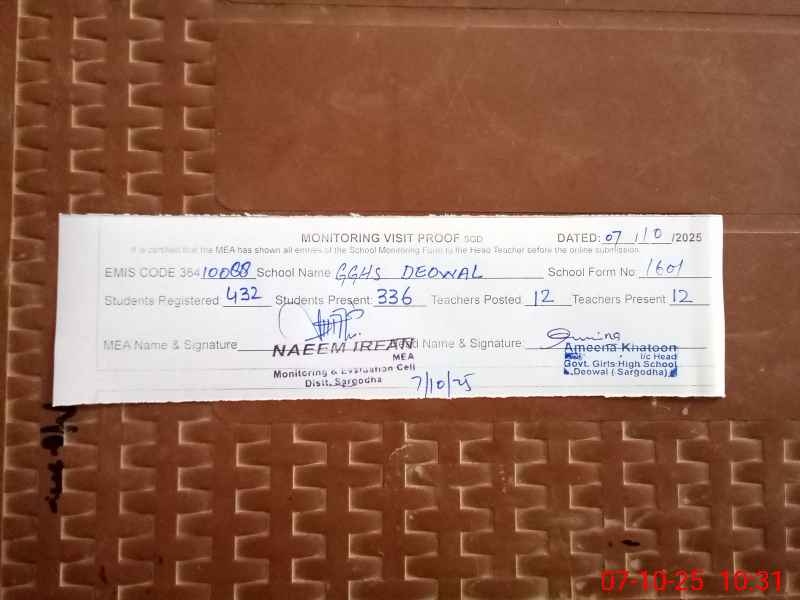 MONITORING VISIT PROOF SGD DATED: 07/10/2025
It is certified that the MEA has shown all entries of the School Monitoring Form to the Head Teacher before the online submission.
EMIS CODE 38410088 School Name GGHS DEOWAL School Form No. 1601
Students Registered 432 Students Present: 336 Teachers Posted 12 Teachers Present 12
MEA Name & Signature Head Name & Signature:
NAEEM IRFAN
MEA
Monitoring & Evaluation Cell
Distt. Sargodha
7/10/25
Ameena Khatoon
I/c Head
Govt. Girls High School
Deowal (Sargodha)
07-10-25 10:31